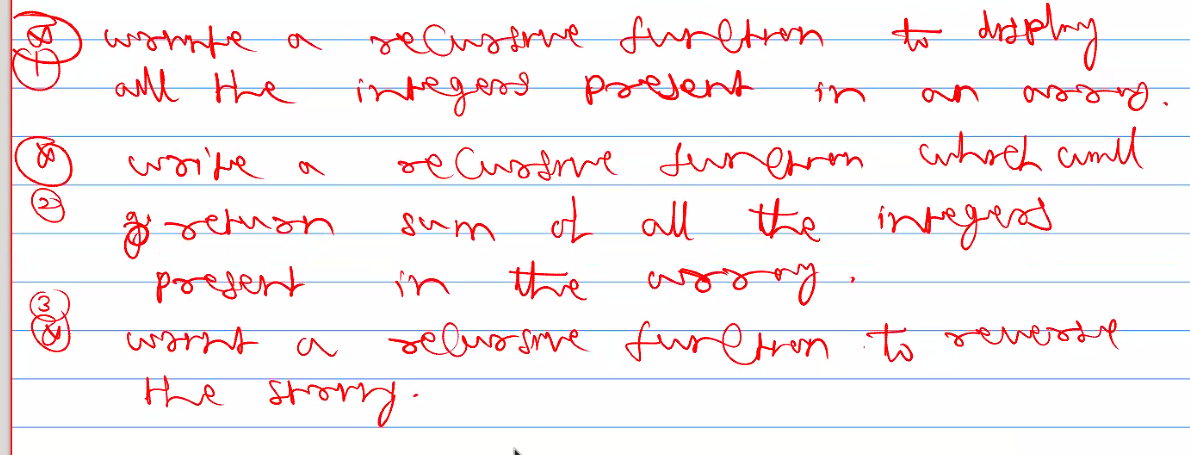 write a recursive function to display
① all the integers present in an array.
write a recursive function which will
② return sum of all the integers
present in the array.
③
write a recursive function to reverse
the string.